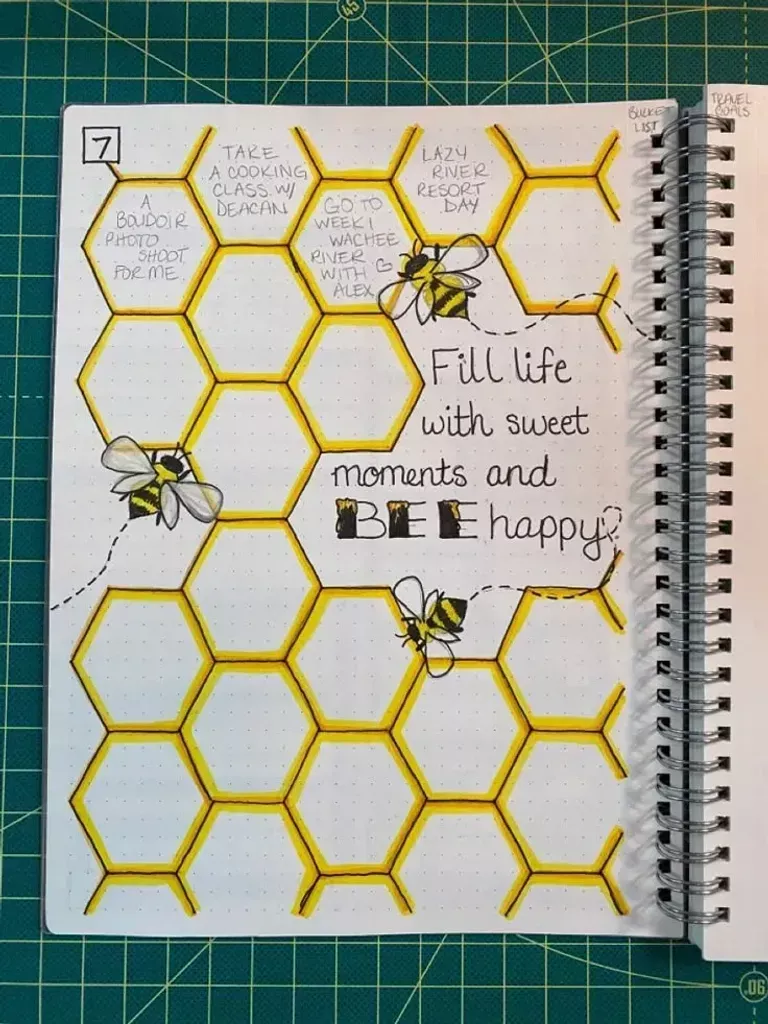 45
BUCKET
LIST
TRAVEL
GOALS
7
TAKE
A COOKING
CLASS W/
DEACAN
LAZY
RIVER
RESORT
DAY
A
BOUDOIR
PHOTO
SHOOT
FOR ME
GO TO
WEEKI
WACHEE
RIVER
WITH
ALEX
Fill life
with sweet
moments and
BEE happy
90